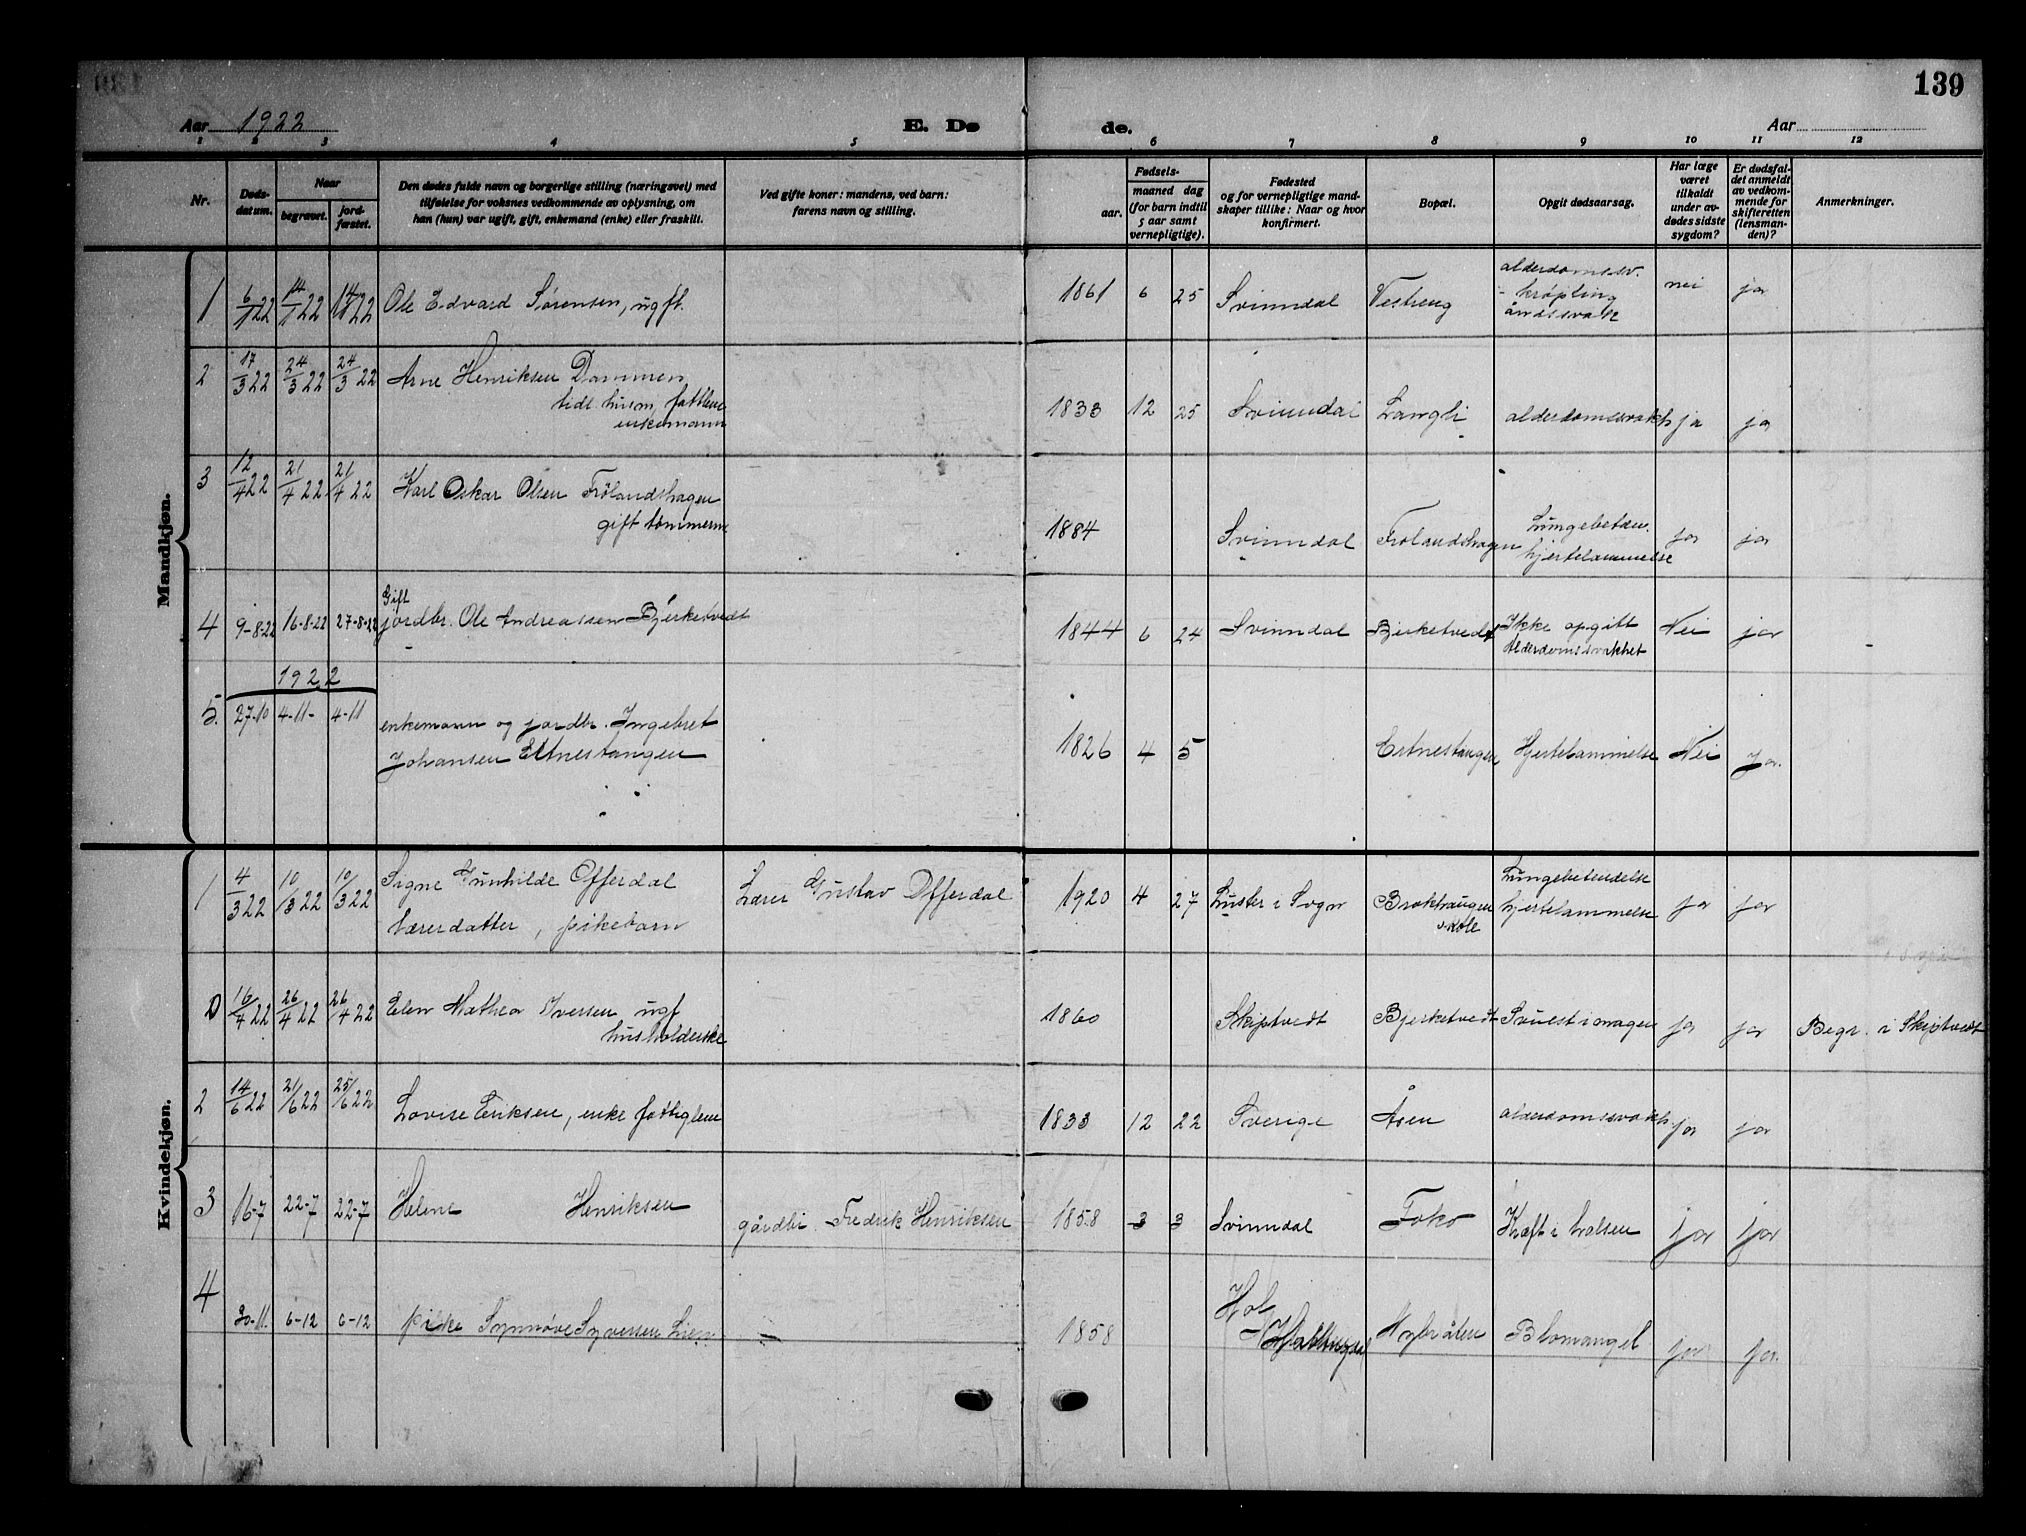 139
Aar 1922
E. Dø
de.
Aar
1 2 3 4 5 6 7 8 9 10 11 12
Nr.
Døds-
datum.
Naar
begravet.
jord-
fæstet.
Den dødes fulde navn og borgerlige stilling (næringsvei) med
tilføielse for voksnes vedkommende av oplysning, om
han (hun) var ugift, gift, enkemand (enke) eller fraskilt.
Ved gifte koner: mandens, ved barn:
farens navn og stilling.
Fødsels-
aar.
maaned dag
(for barn indtil
5 aar samt
vernepligtige).
Fødested
og for vernepligtige mand-
skaper tillike: Naar og hvor
konfirmert.
Bopæl.
Opgit dødsaarsag.
Har læge
været
tilkaldt
under av-
dødes sidste
sygdom?
Er dødsfal-
det anmeldt
av vedkom-
mende for
skifteretten
(lensman-
den)?
Anmerkninger.
Mandkjøn.
1 6/1 22 14/1 22 14/1 22 Ole Edvard Sørensen, ugft. 1861 6 25 Svinndal Vestreng alderdomssv.
- krøpling
åndssvak
nei ja
2 17/3 22 24/3 22 24/3 22 Arne Henriksen Dammen
tidl. husm, fattlem
enkemann
1833 12 25 Svinndal Langli alderdomssvakh ja ja
3 12/4 22 21/4 22 21/4 22 Karl Oskar Olsen Frølandshagen
gift tømmerm
1884 Svinndal Frølandshagen Lungebetæn.
hjertelammelse
ja ja
4 9-8-22 16-8-22 27-8-22 Gift
jordbr. Ole Andreassen Bjerketvedt
1844 6 24 Svinndal Bjerketvedt Ikke opgitt
Alderdomssvakhet
Nei ja
1922
5. 27-10 4-11- 4-11 enkemann og jordbr. Ingebret
Johansen Ertnestangen
1826 4 5 Ertnestangen Hjertelammelse Nei Ja.
Kvindekjøn.
1 4/3 22 10/3 22 10/3 22 Signe Gunhilde Offerdal
Lærerdatter, pikebarn
Lærer Gustav Offerdal 1920 4 27 Luster i Sogn
skole
Lungebetendelse
hjertelammelse
ja ja
D 16/4 22 26/4 22 26/4 22 Elen Mathea Iversen ugf
husholderske
1860 Skiptvedt Bjerketvedt Svulst i magen ja ja Begr. i Skiptvedt
2 14/6 22 21/6 22 25/6 22 Lovise Eriksen, enke fattiglem 1833 12 22 Sverige Åsen alderdomssvakh ja ja
3 16-7 22-7 22-7 Helene Henriksen gårdbr. Fredrik Henriksen 1858 3 3 Svinndal Foko Kræft i halsen ja ja
4 30-11. 6-12 6-12 pike Synnøve Syversen Lien — 1858 Hol
Hallingdal
Nybråten Blomangel ja ja.